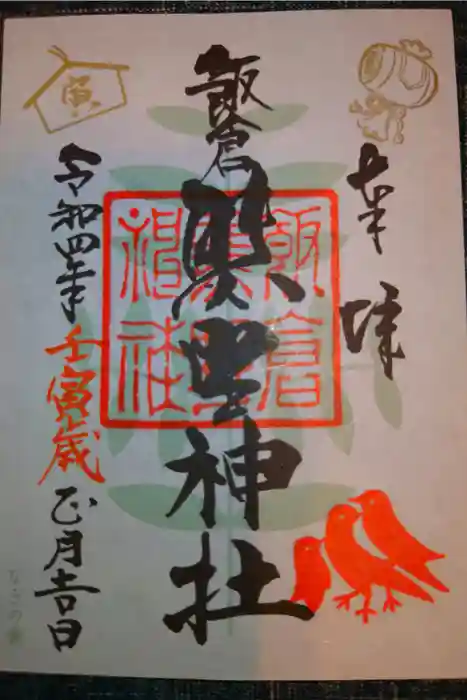 奉拝
飯倉
熊野神社
飯倉
熊野
神社
寅
令和四年壬寅歳正月吉日